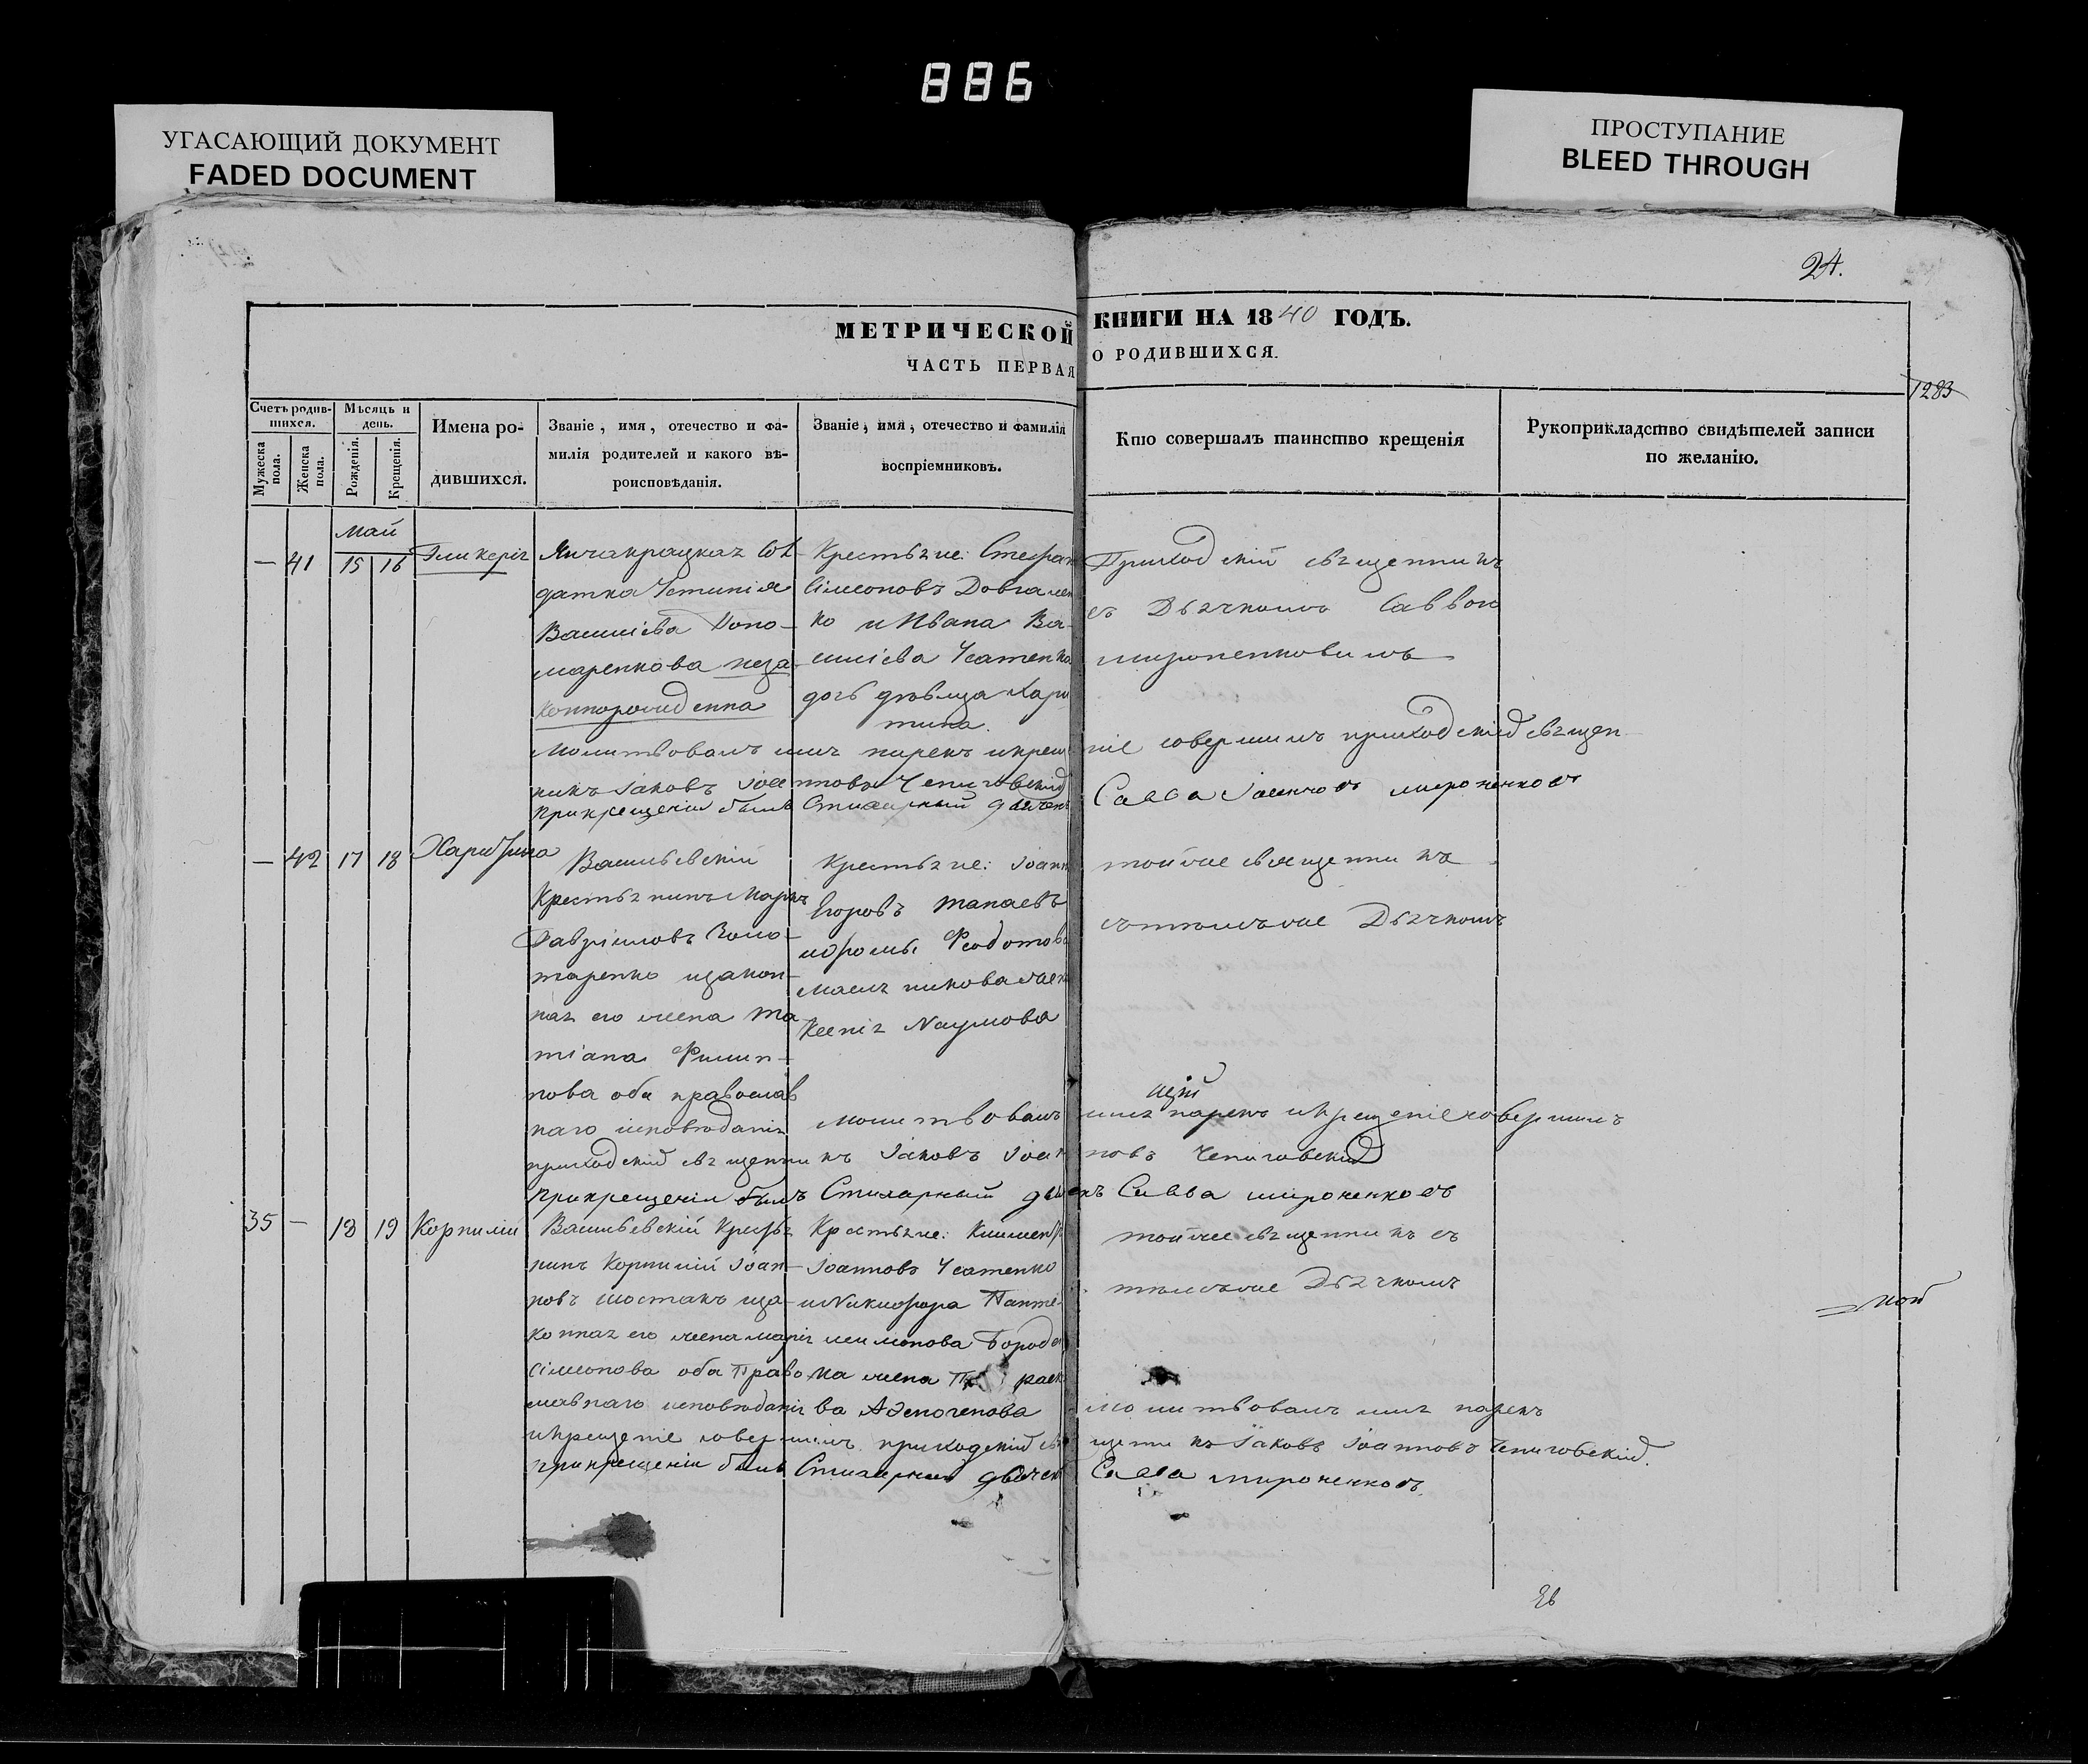 886
УГАСАЮЩИЙ ДОКУМЕНТ
FADED DOCUMENT
ПРОСТУПАНИЕ
BLEED THROUGH
24.
МЕТРИЧЕСКОЙ КНИГИ НА 1840 ГОДЪ.
ЧАСТЬ ПЕРВАЯ О РОДИВШИХСЯ.
1283
Счетъ родив-
шихся.
Мужеска пола.
Женска пола.
Мѣсяцъ и
день.
Рожденія.
Крещенія.
Имена ро-
дившихся.
Званіе, имя, отечество и фа-
милія родителей и какого вѣ-
роисповѣданія.
Званіе, имя, отечество и фамилія
воспріемниковъ.
Кто совершалъ таинство крещенія
Рукоприкладство свидѣтелей записи
по желанію.
май
— 41 15 16 Гликерія
Сол-
датка Устинія
Василіева Поно-
маренкова неза
коннорожденна
Крестьяне: Стефан
Сімеоновъ Довгален
ко и Ивана Ва-
силіева Усатенка
дочь дѣвица Хари
тина.
Приходскій священникъ
съ Дьячкомъ Саввою
мироненковымъ
Молитвовалъ имя нарекъ и крещеніе совершилъ приходскій священ
никъ Іаковъ Іоанновъ Чепиговскій
при крещеніи былъ Стихарный дьячекъ Савва Іоанновъ мироненковъ
— 42 17 18 Харитина
Васильевскій
Крестьянинъ Маркъ
Гавріиловъ Золо-
таренко и закон-
ная его жена Та
тіана Филип-
пова оба православ
наго исповѣданія
Крестьяне: Іоанн
Егоровъ
Федотова
Ксенія Наумова
тойже священникъ
сътѣмъже Дьячкомъ
щій
молитвовалъ имя нарекъ и крещеніе совершилъ
приходскій священникъ Іаковъ Іоанновъ Чепиговскій
при крещеніи былъ Стихарный дьячекъ Савва мироненковъ
35 — 18 19 Корнилій
Васильевскій Крестья
нинъ Корнилій Іоан-
новъ Шостакъ и за-
конная его жена марія
Сімеонова оба Право
славнаго исповѣданія
Крестьяне: Климент
Іоанновъ Усатенко
и Никифора Панте-
леимонова Бород
ка жена Параск
ва
тойже священникъ съ
тѣмъже Дьячкомъ
молитвовалъ имя нарекъ
и крещеніе совершилъ приходскій священникъ Іаковъ Іоанновъ Чепиговскій.
при крещеніи былъ Стихарный дьячекъ Савва мироненковъ.